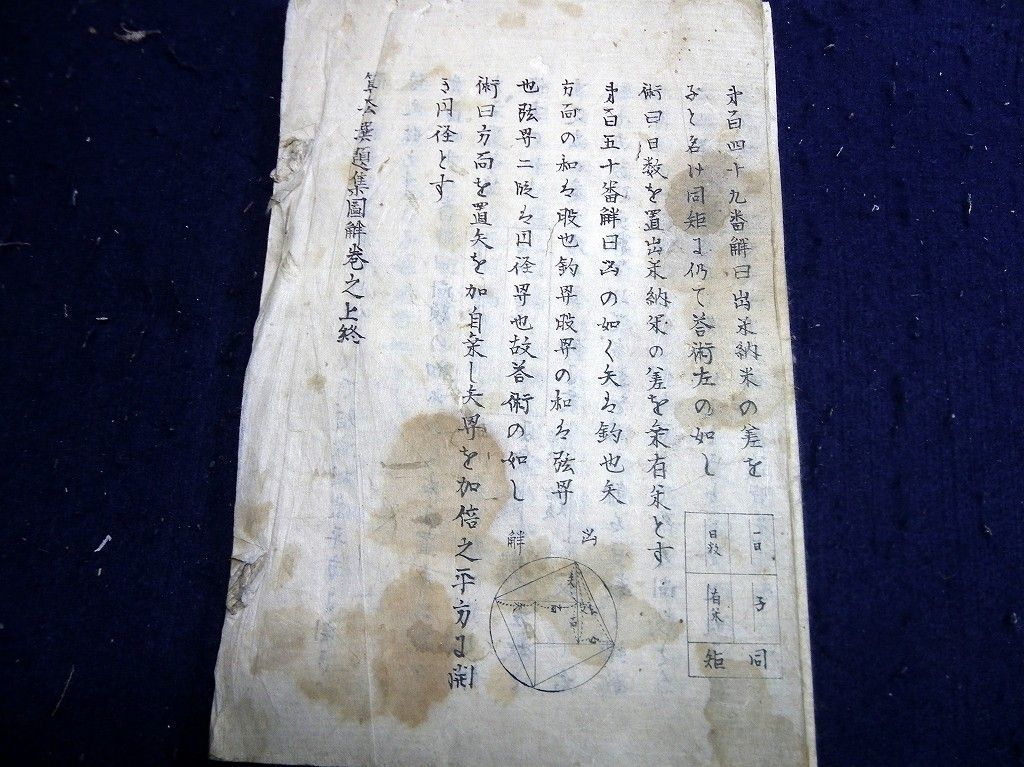 第百四十九番解曰出米納米の差を
子と名け同矩に仍て答術左の如し
術曰日数を置出米納米の差を乗有米とす
一日 子 同
日数 有米 矩
第百五十番解曰圖の如く矢は釣也矢
方面の和は股也釣冪股冪の和は弦冪
也弦冪二段は円径冪也故答術の如し
術曰方面を置矢を加自乗し矢冪を加倍之平方に開
き円径とす
圖
解
矢
算法 題集圖解巻之上終